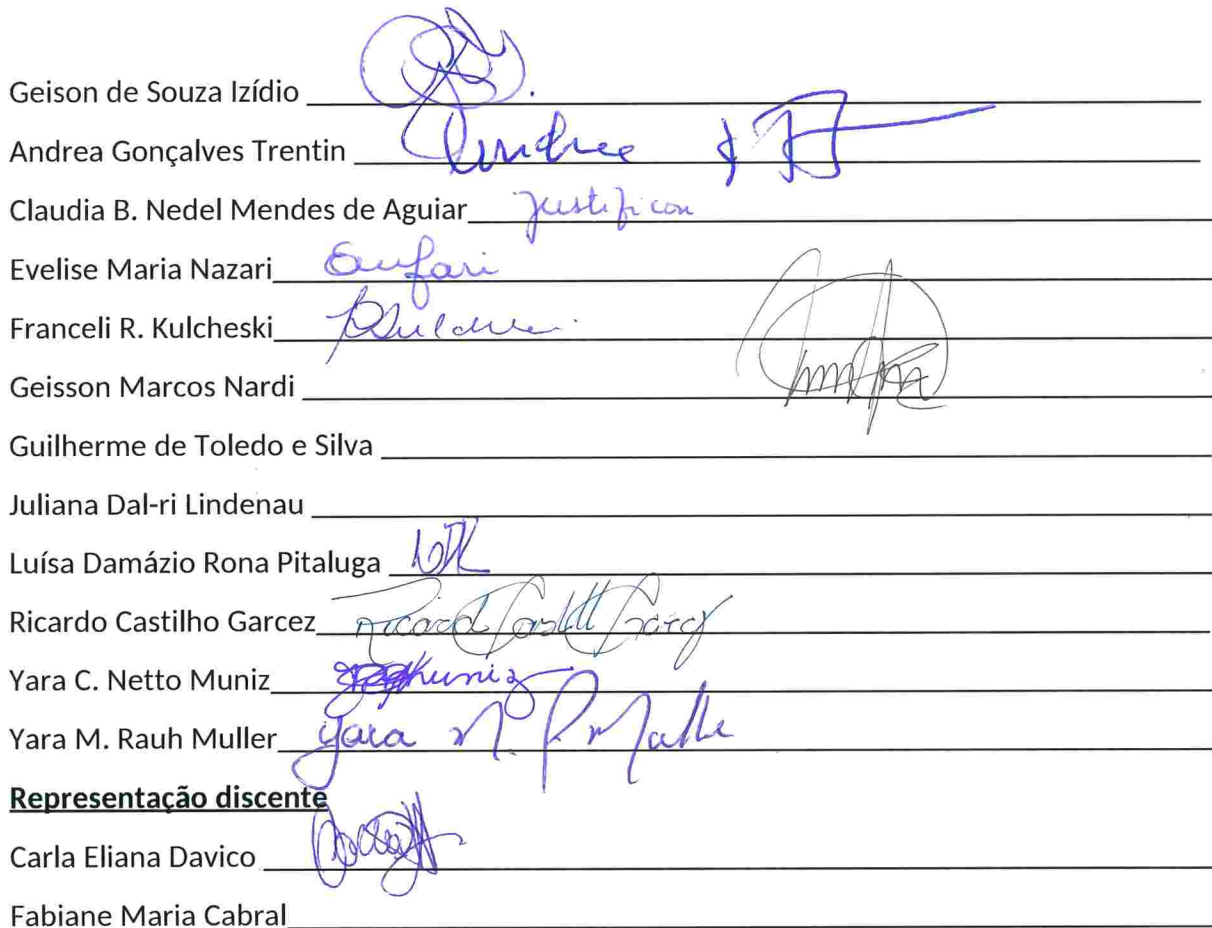 Geison de Souza Izídio
Andrea Gonçalves Trentin Andrea
Claudia B. Nedel Mendes de Aguiar Justificou
Evelise Maria Nazari
Franceli R. Kulcheski
Geisson Marcos Nardi
Guilherme de Toledo e Silva
Juliana Dal-ri Lindenau
Luísa Damázio Rona Pitaluga
Ricardo Castilho Garcez
Yara C. Netto Muniz
Yara M. Rauh Muller Yara M.
Representação discente
Carla Eliana Davico
Fabiane Maria Cabral